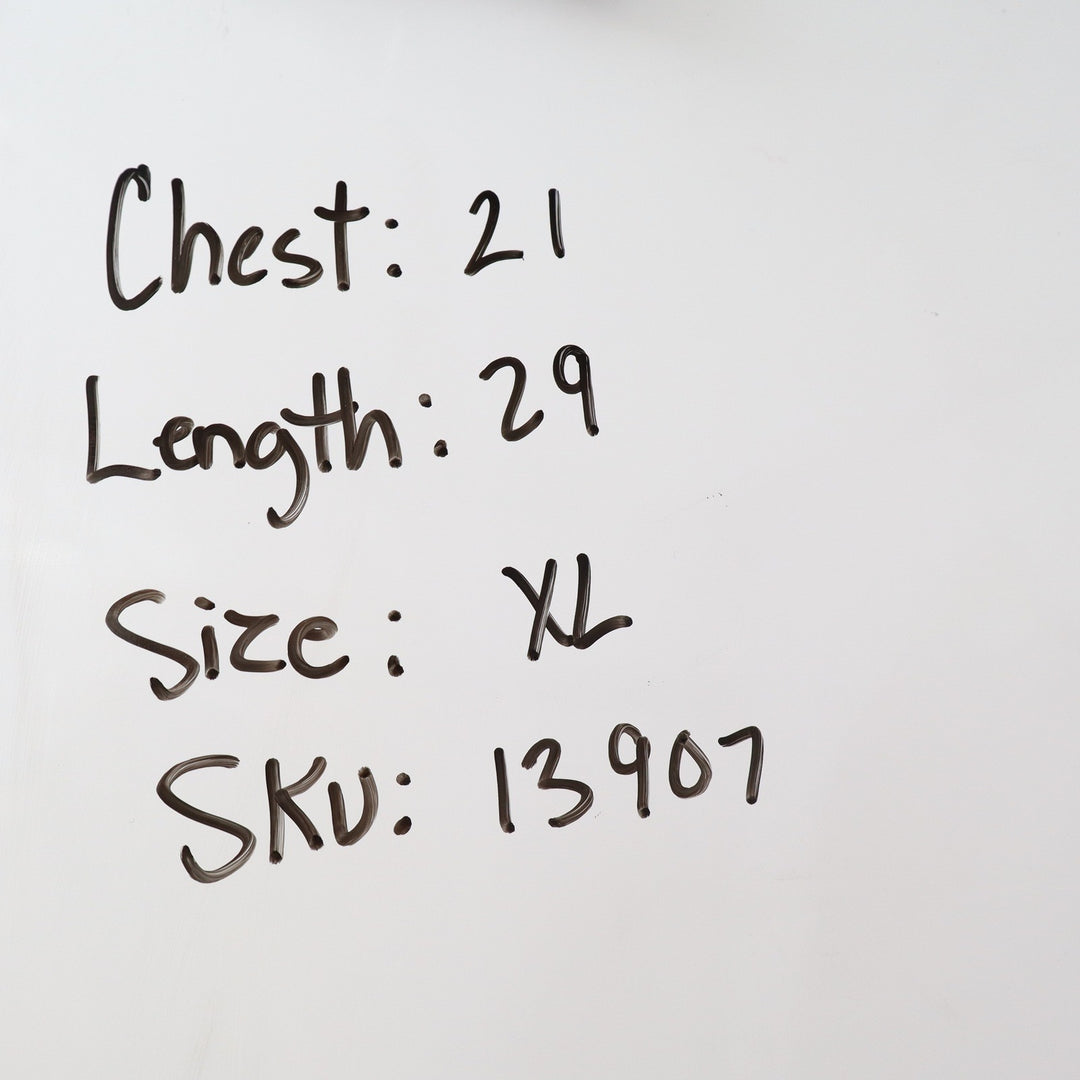 Chest: 21
Length: 29
Size: XL
SKU: 13907